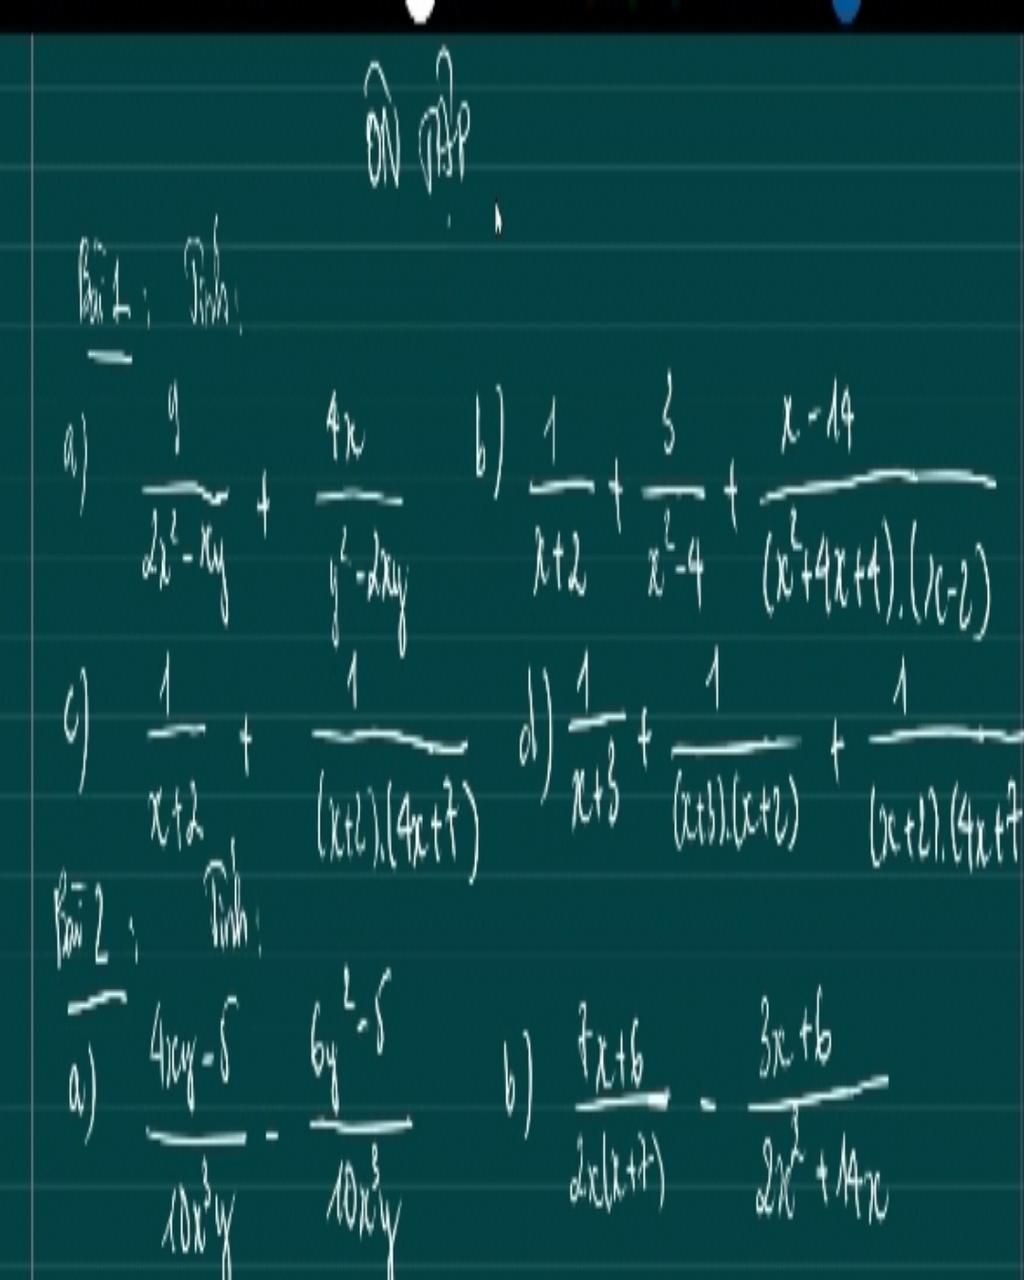 ÔN TẬP
Bài 1: Tính:
a) y/(2x² - xy) + 4x/(y² - 2xy) b) 1/(x+2) + 3/(x² - 4) + (x - 14)/((x² + 4x + 4).(x - 2))
c) 1/(x+2) + 1/((x+2).(4x+7)) d) 1/(x+3) + 1/((x+3).(x+2)) + 1/((x+2).(4x+7
Bài 2: Tính:
a) (4xy - 5)/(10x³y) - (6y² - 5)/(10x³y) b) (7x+6)/(2x(x+7)) - (3x+6)/(2x² + 14x)